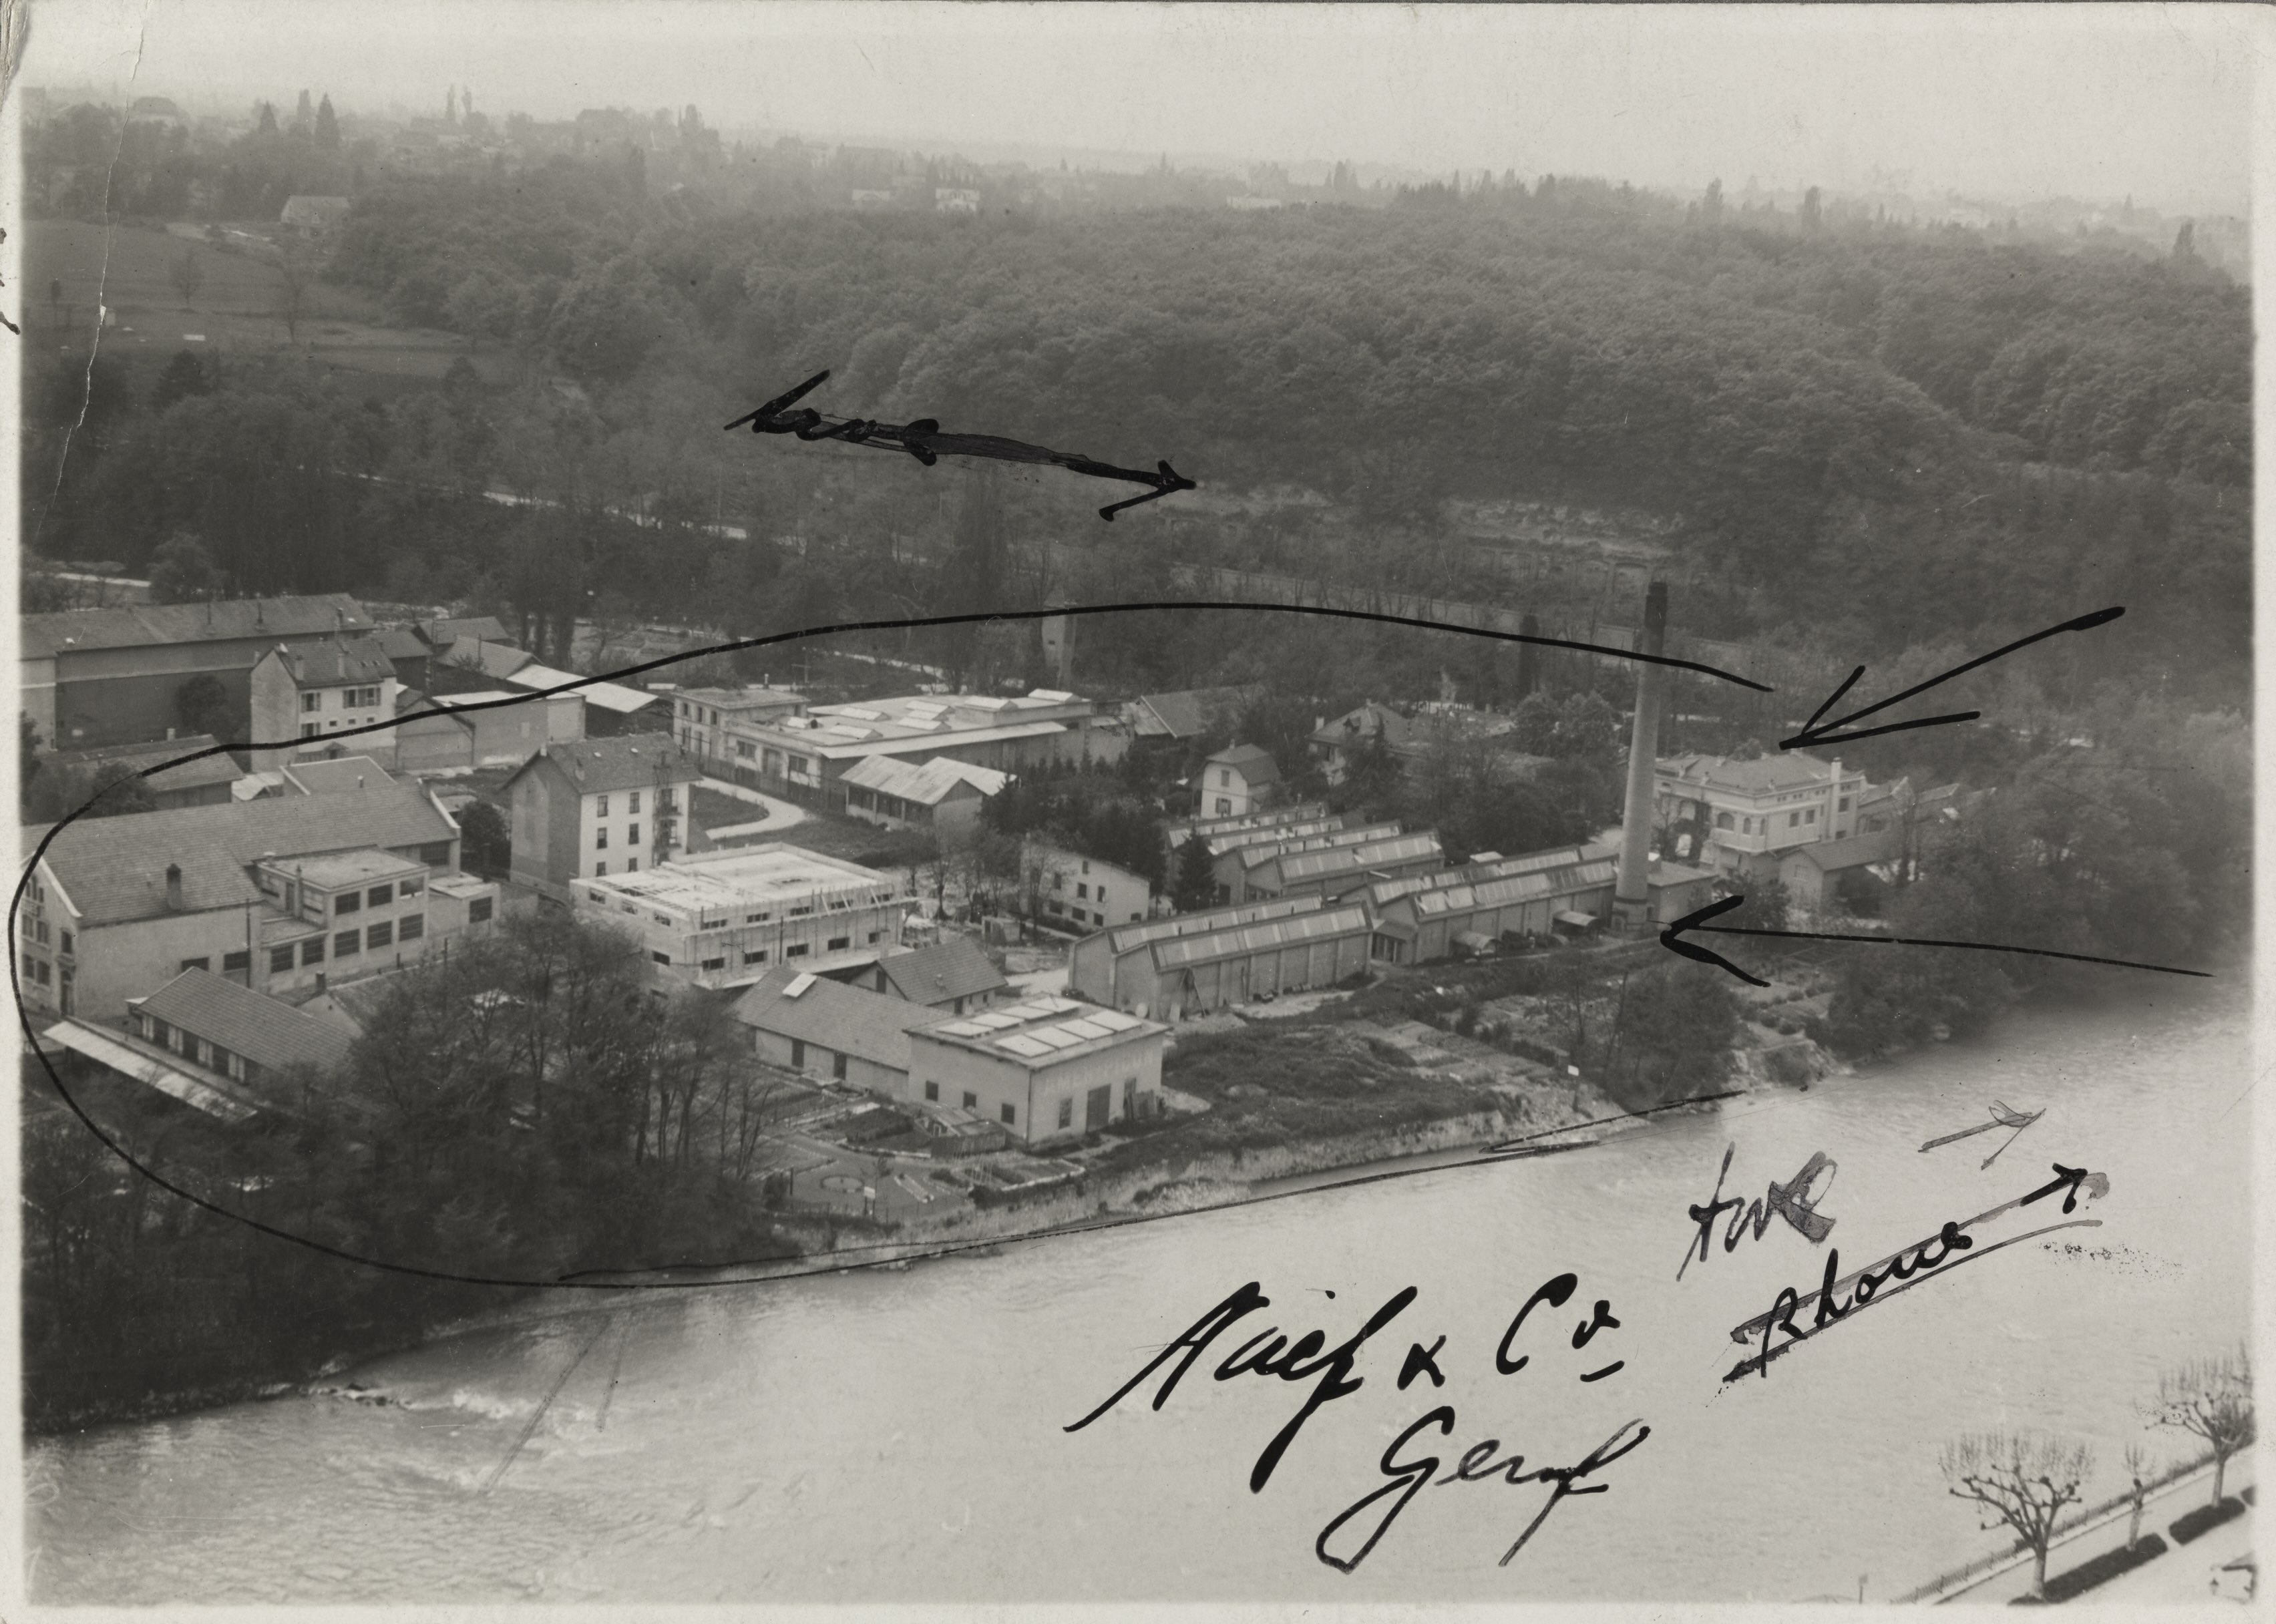 Arve
Rhone
Naef & Co
Genf